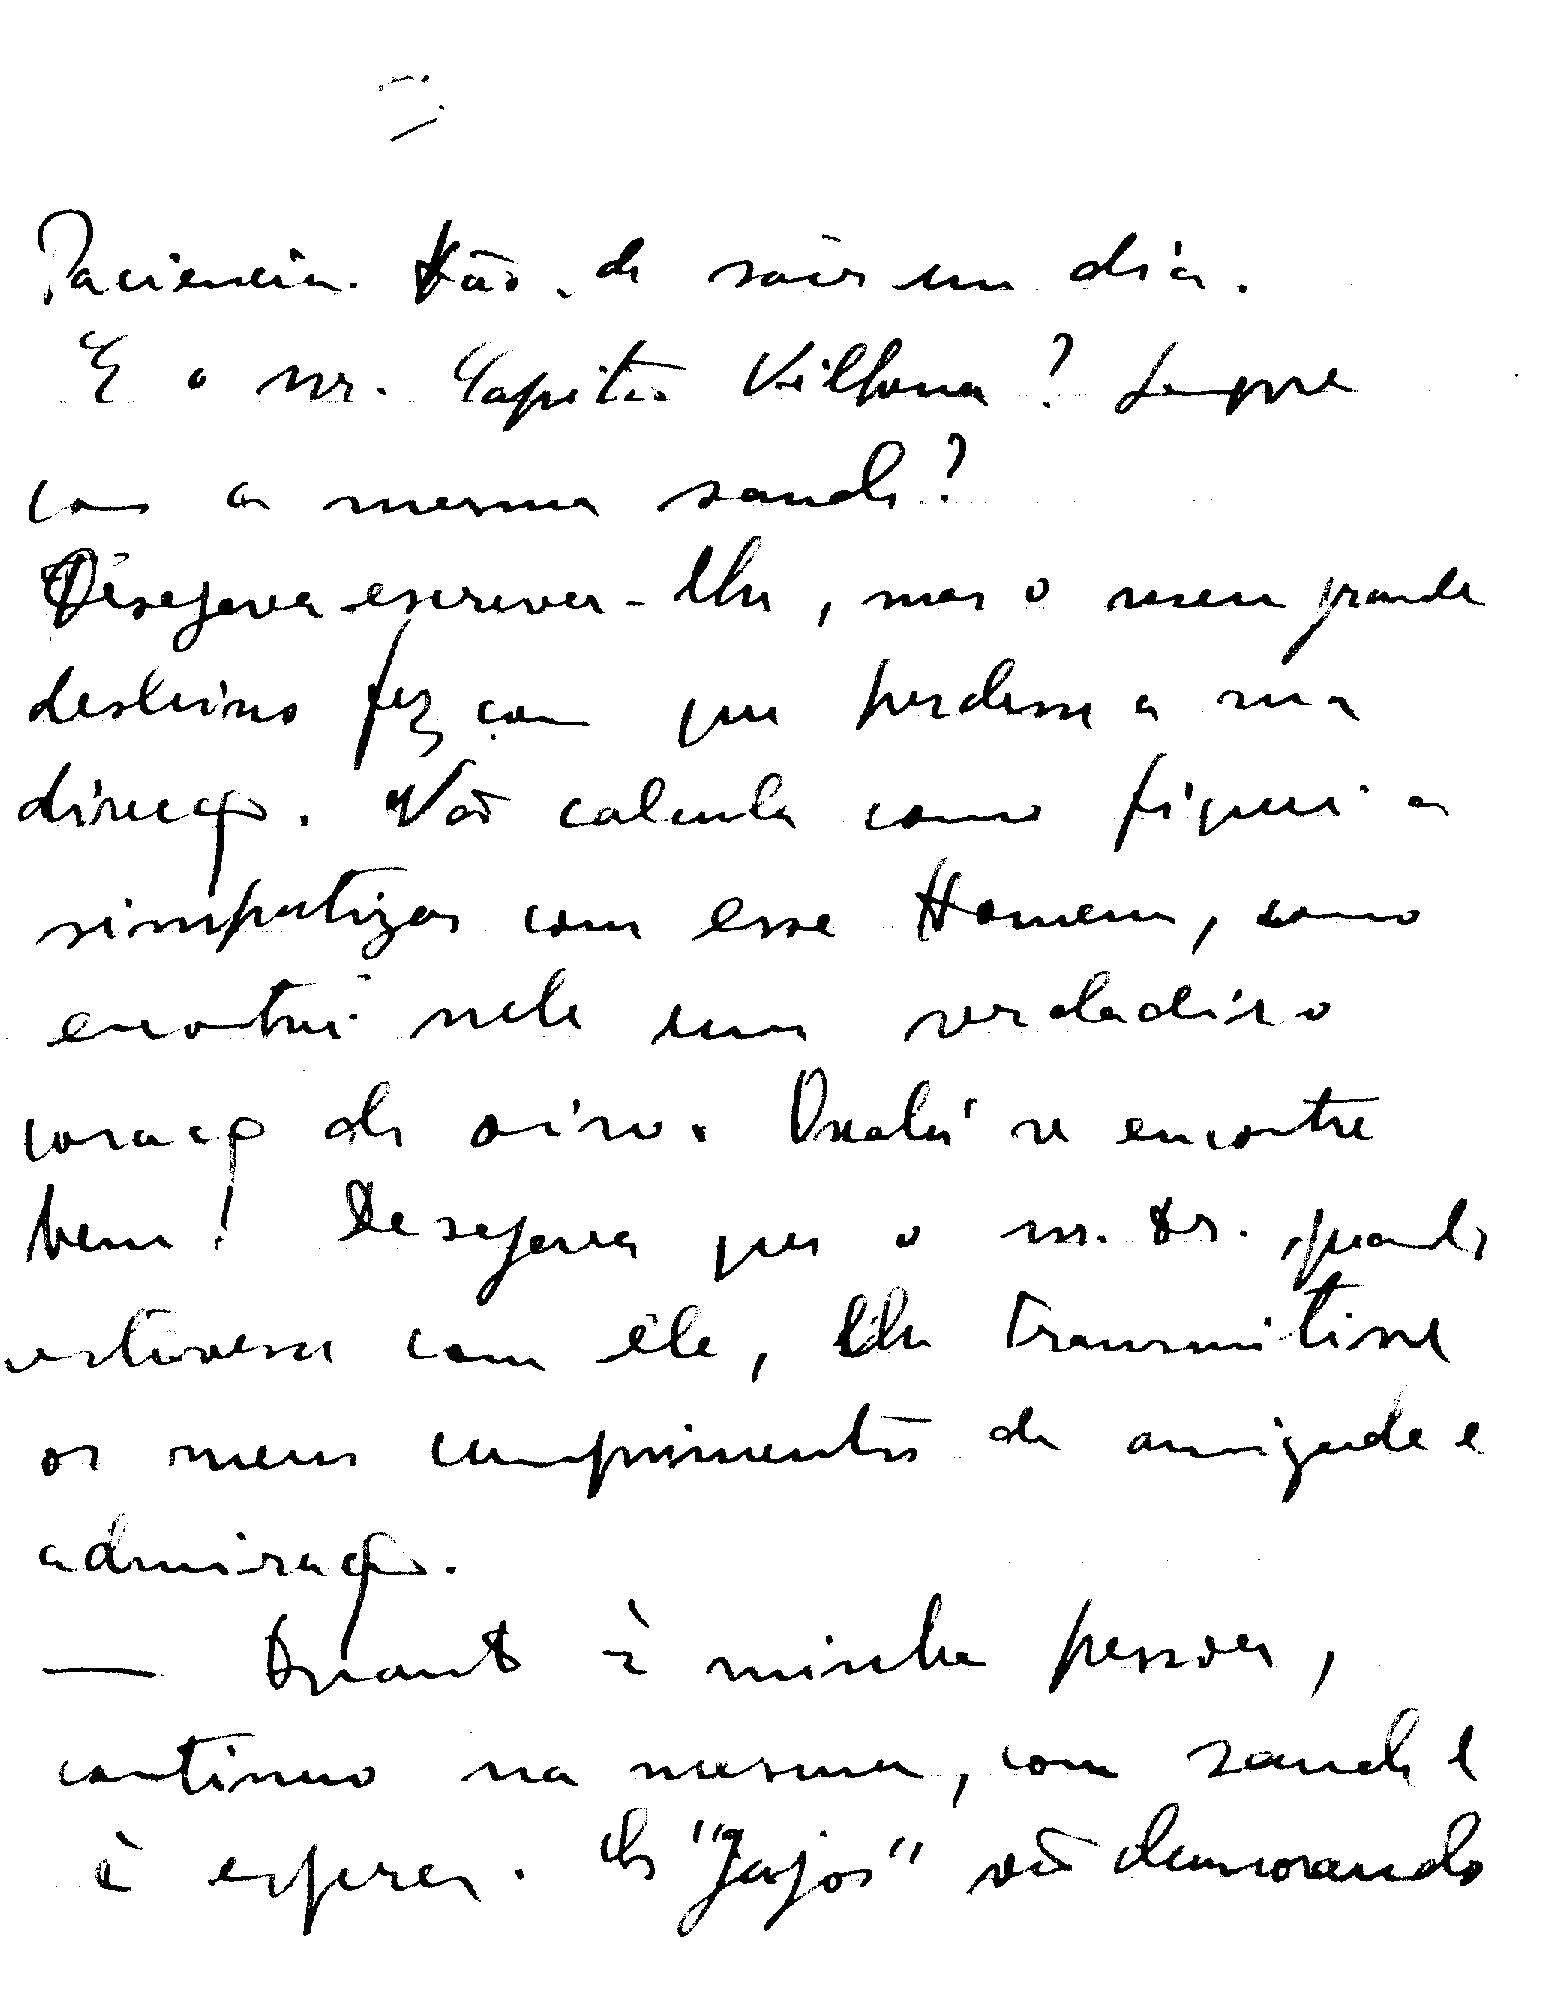 Paciencia. Hão de sair um dia.
E o sr. Capitão Vilhena? Sempre
com a mesma saude?
Desejava escrever-lhe, mas o meu grande
destino fez com que perdesse a sua
direcção. Não calcula como fiquei a
simpatizar com esse Homem, como
encontrei nele um verdadeiro
coração de oiro. Oxalá se encontre
bem! Desejava que o sr. Dr. quando
estivesse com êle, lhe transmitisse
os meus cumprimentos de amizade e
admiração.
— Quanto à minha pessoa,
continuo na mesma, com saude e
à espera. Os "Jajos" vão demorando